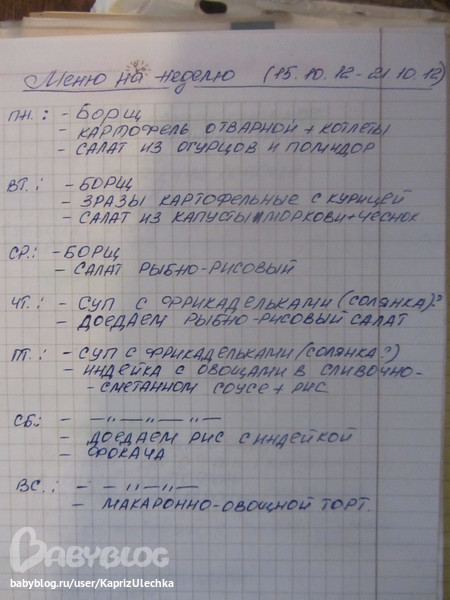 Меню на неделю (15.10.12-21.10.12)
ПН.: - БОРЩ
- КАРТОФЕЛЬ ОТВАРНОЙ + КОТЛЕТЫ
- САЛАТ ИЗ ОГУРЦОВ И ПОМИДОР
ВТ.: - БОРЩ
- ЗРАЗЫ КАРТОФЕЛЬНЫЕ С КУРИЦЕЙ
- САЛАТ ИЗ КАПУСТЫ И МОРКОВИ + ЧЕСНОК
СР.: - БОРЩ
- САЛАТ РЫБНО-РИСОВЫЙ
ЧТ.: - СУП С ФРИКАДЕЛЬКАМИ (СОЛЯНКА)?
- ДОЕДАЕМ РЫБНО-РИСОВЫЙ САЛАТ
ПТ.: - СУП С ФРИКАДЕЛЬКАМИ (СОЛЯНКА?)
- ИНДЕЙКА С ОВОЩАМИ В СЛИВОЧНО-
- СМЕТАННОМ СОУСЕ + РИС
СБ.: - -"-"-"-
- ДОЕДАЕМ РИС С ИНДЕЙКОЙ
- ФОКАЧА
ВС.: - -"-"-
- МАКАРОННО-ОВОЩНОЙ ТОРТ.
BABYBLOG
babyblog.ru/user/KaprizUlechka